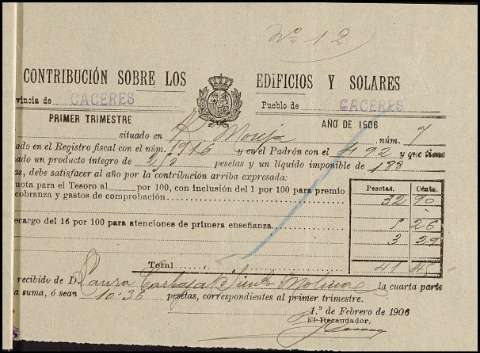 Nº 12
CONTRIBUCIÓN SOBRE LOS EDIFICIOS Y SOLARES
vincia de CACERES Pueblo de CACERES
PRIMER TRIMESTRE AÑO DE 1906
situado en núm. 7
ado en el Registro fiscal con el núm. 1916 y en el Padrón con el 492 y que tiene
ado un producto íntegro de 2/2 pesetas y un líquido imponible de 188
as, debe satisfacer al año por la contribución arriba expresada:
uota para el Tesoro al por 100, con inclusión del 1 por 100 para premio
obranza y gastos de comprobación.
Pesetas. Cénts.
32 90
ecargo del 16 por 100 para atenciones de primera enseñanza.
1 26
3 29
Total
recibido de D. Molina la cuarta parte
a suma, ó sean 10·36 pesetas, correspondientes al primer trimestre.
1.º de Febrero de 1906
El Recaudador,